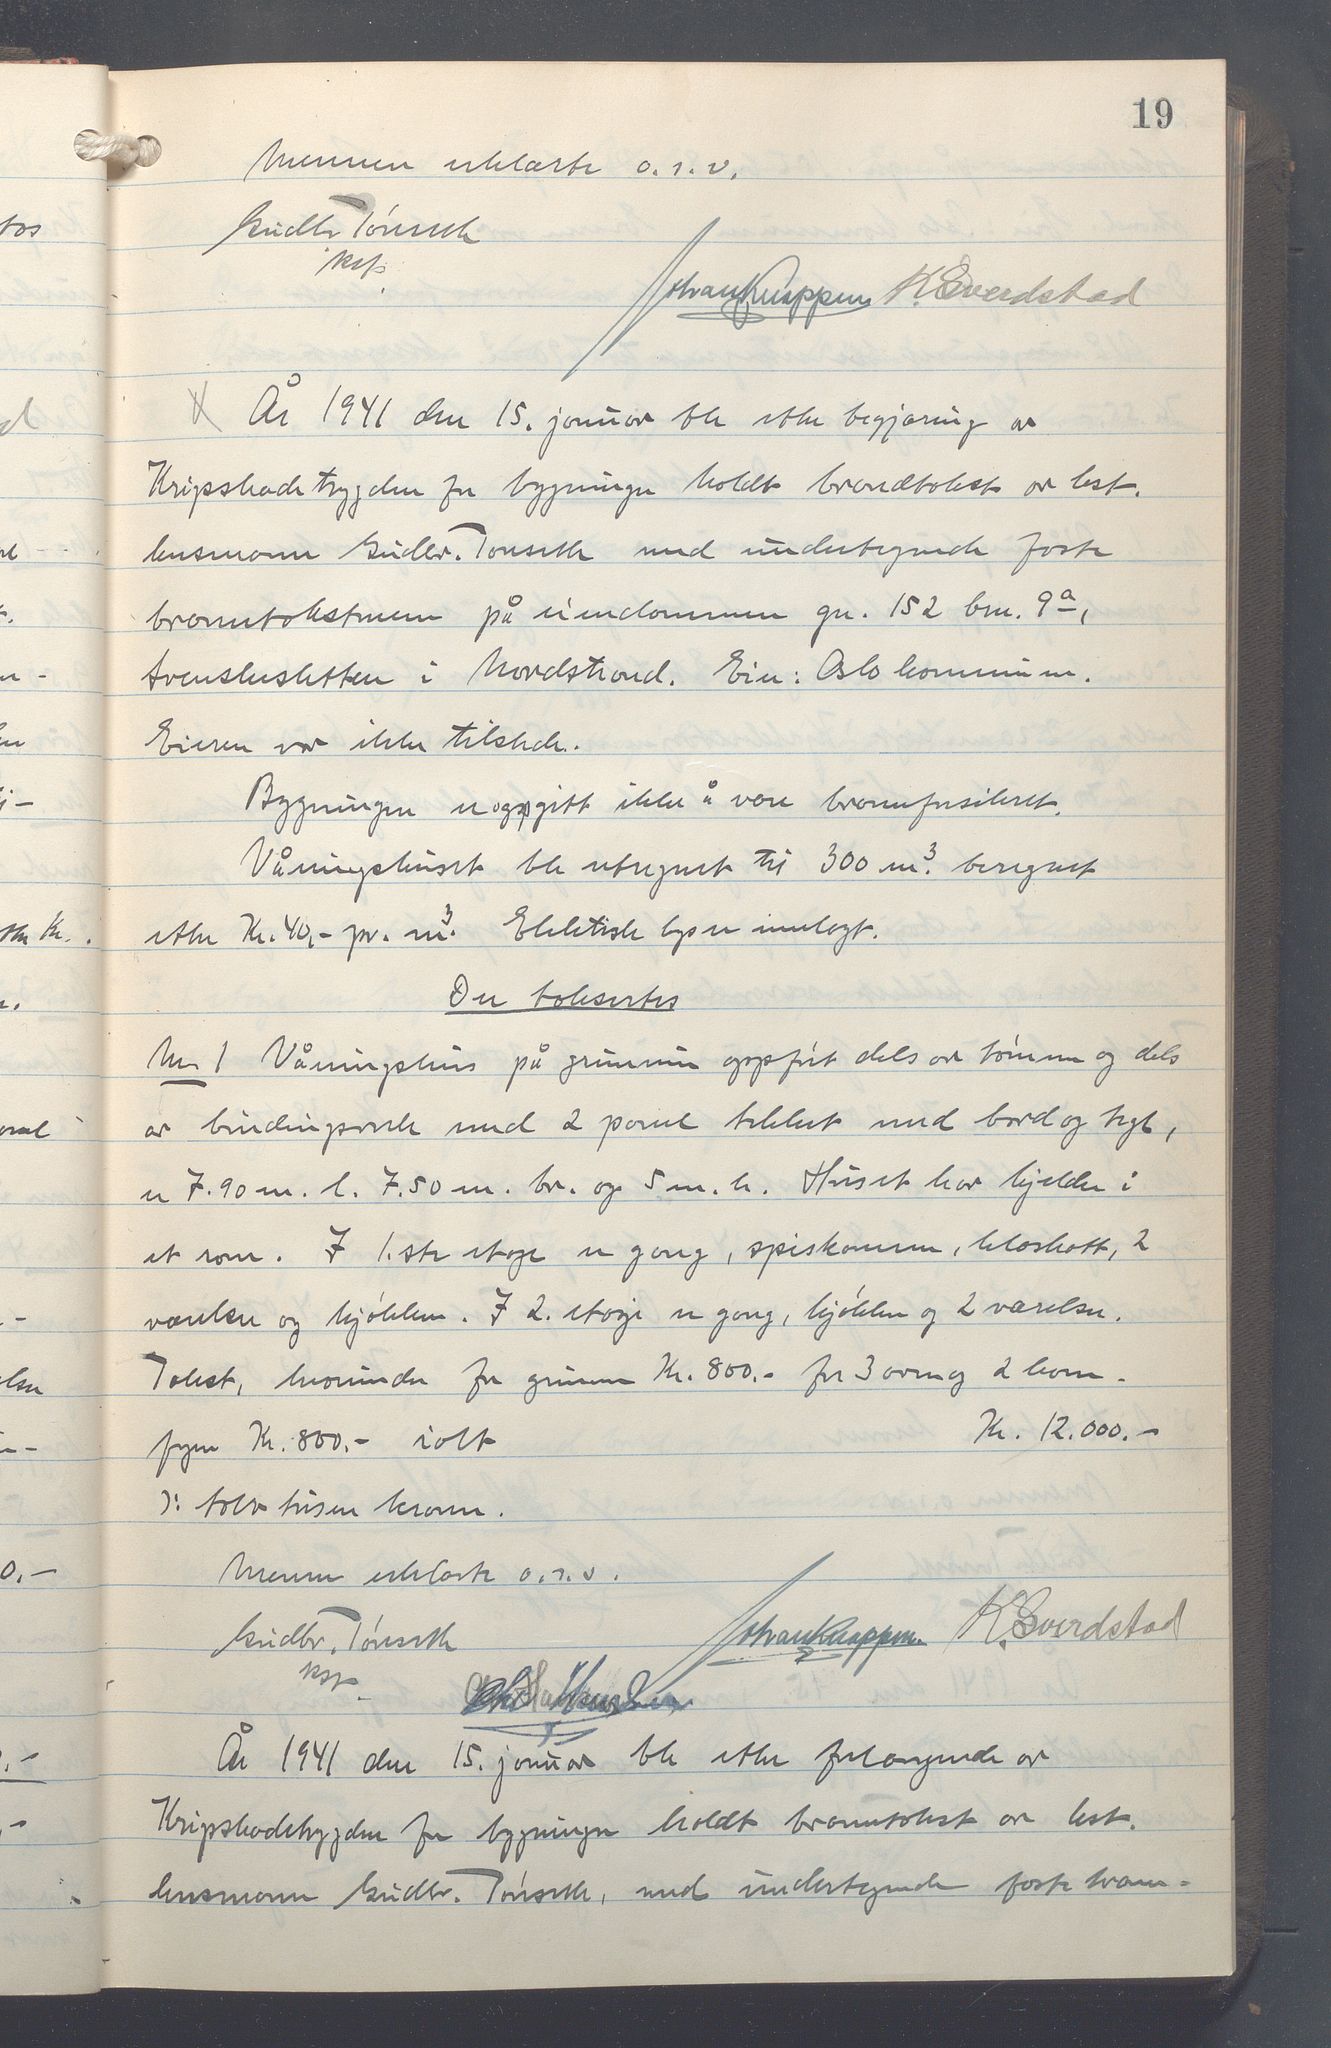 19
Mennene erklærte o.s.v.
Gudbr Tønseth
ksf.
Johan Knappen K. Sverdstad
År 1941 den 15. januar ble etter begjæring av
Krigsskadetrygden for bygninger holdt brandtakst av best.
lensmann Gudbr. Tønseth med undertegnede faste
branntakstmenn på eiendommen gn. 152 bnr. 9a,
Svenskesletten i Nordstrand. Eier: Oslo kommune.
Eieren var ikke tilstede.
Bygningen er oppgitt ikke å være brannforsikret.
Våningshuset ble utregnet til 300 m3. beregnet
etter Kr. 40,- pr. m3. Elektrisk lys er innlagt.
Der taksertes
Nr 1 Våningshus på grunnmur oppført dels av tømmer og dels
av bindingsverk med 2 panel tekket med bord og tegl,
er 7.90 m. l. 7.50 m. br. og 5 m. h. Huset har kjelder i
et rom. I 1.ste etage er gang, spiskammer, kleskott, 2
værelser og kjøkken. I 2. etage er gang, kjøkken og 2 værelser.
Takst, herunder for grunnm Kr. 800.- for 3 ovner og 2 kom-
fyrer Kr. 800.- ialt Kr. 12.000.-
ɔ: tolv tusen kroner.
Mennene erklærte o.s.v.
Gudbr. Tønseth Johan Knappen. K. Sverdstad
ksf.
År 1941 den 15. januar ble etter forlangende av
Krigsskadetrygden for bygninger holdt branntakst av best.
lensmann Gudbr. Tønseth, med undertegnede faste brann-